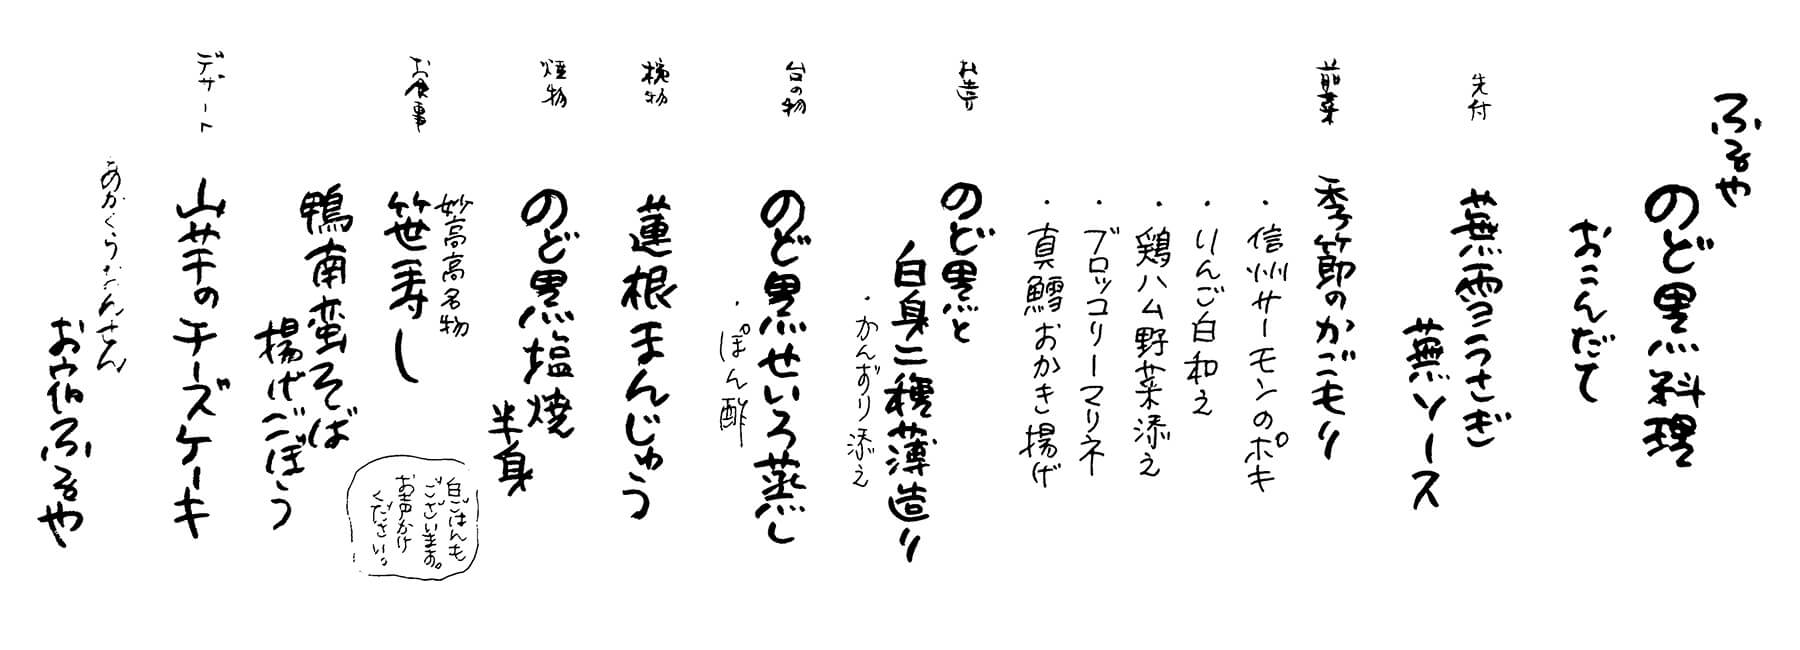 ふるや
のど黒料理
おこんだて
先付
蕪雪うさぎ
蕪ソース
前菜
季節のかごもり
・信州サーモンのポキ
・りんご白和え
・鶏ハム野菜添え
・ブロッコリーマリネ
・真鱈おかき揚げ
お造り
のど黒と
白身二種薄造り
・かんずり添え
台の物
のど黒せいろ蒸し
・ぽん酢
椀物
蓮根まんじゅう
焼物
のど黒塩焼
半身
お食事
妙高高名物
笹寿し
白ごはんも
ございます。
お声かけ
ください。
鴨南蛮そば
揚げごぼう
デザート
山芋のチーズケーキ
あかくらおんせん
お宿ふるや